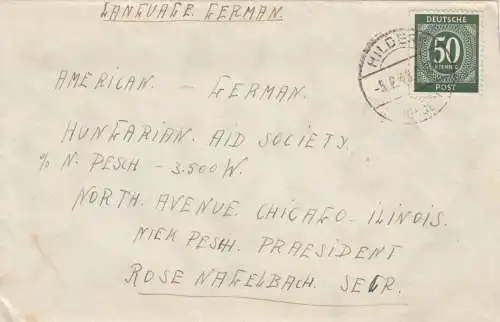 LANGUAGE. GERMAN.
DEUTSCHE
50
PFENNIG
POST
AMERICAN. - GERMAN.
HUNGARIAN. AID SOCIETY.
% N. PESCH - 3.500 W.
NORTH. AVENUE. CHICAGO. ILINOIS.
NIEK PESCH. PRAESIDENT
ROSE NAGELBACH. SECR.